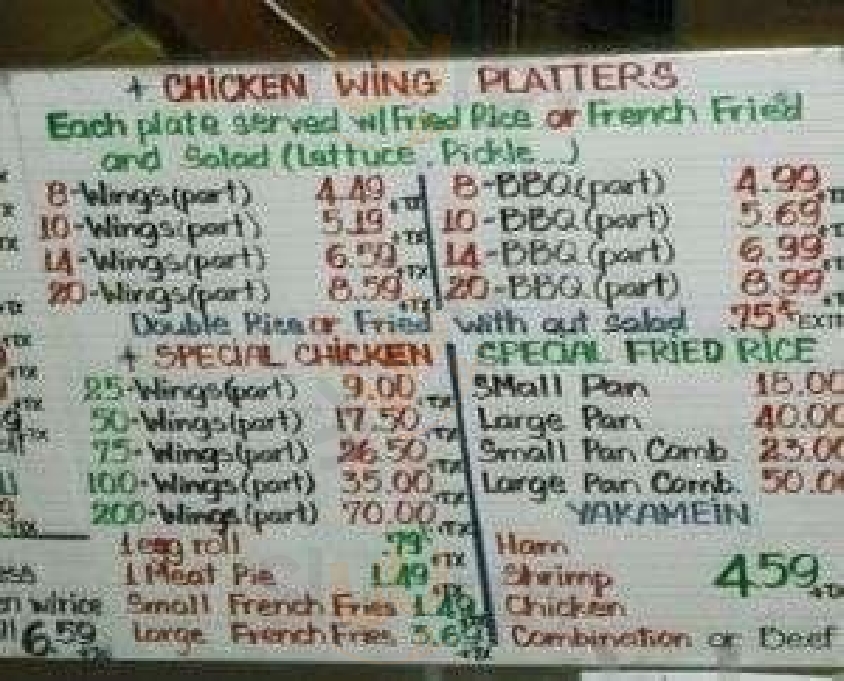 + CHICKEN WING PLATTERS
Each plate served w/Fried Rice or French Fried
and Salad (Lettuce, Pickle...)
8-Wings(part) 4.49 +TX 8-BBQ(part) 4.99 +T
10-Wings(part) 5.19 +TX 10-BBQ(part) 5.69 +T
14-Wings(part) 6.59 +TX 14-BBQ(part) 6.99 +T
20-Wings(part) 8.59 +TX 20-BBQ(part) 8.99 +T
Double Rice or Fried with out salad .75¢ EXTR
+ SPECIAL CHICKEN SPECIAL FRIED RICE
25-Wings(part) 9.00 +TX SMall Pan 18.00
50-Wings(part) 17.50 +TX Large Pan 40.00
75-Wings(part) 26.50 +TX Small Pan Comb. 23.00
100-Wings(part) 35.00 +TX Large Pan Comb. 50.00
200-Wings(part) 70.00 +TX YAKAMEIN
1 egg roll .79¢ +TX Ham
1 Meat Pie 1.49 +TX Shrimp 4.59 +TX
wirice Small French Fries 1.49 Chicken
6.59 +TX Large French Fries 3.69 +TX Combination or Beef